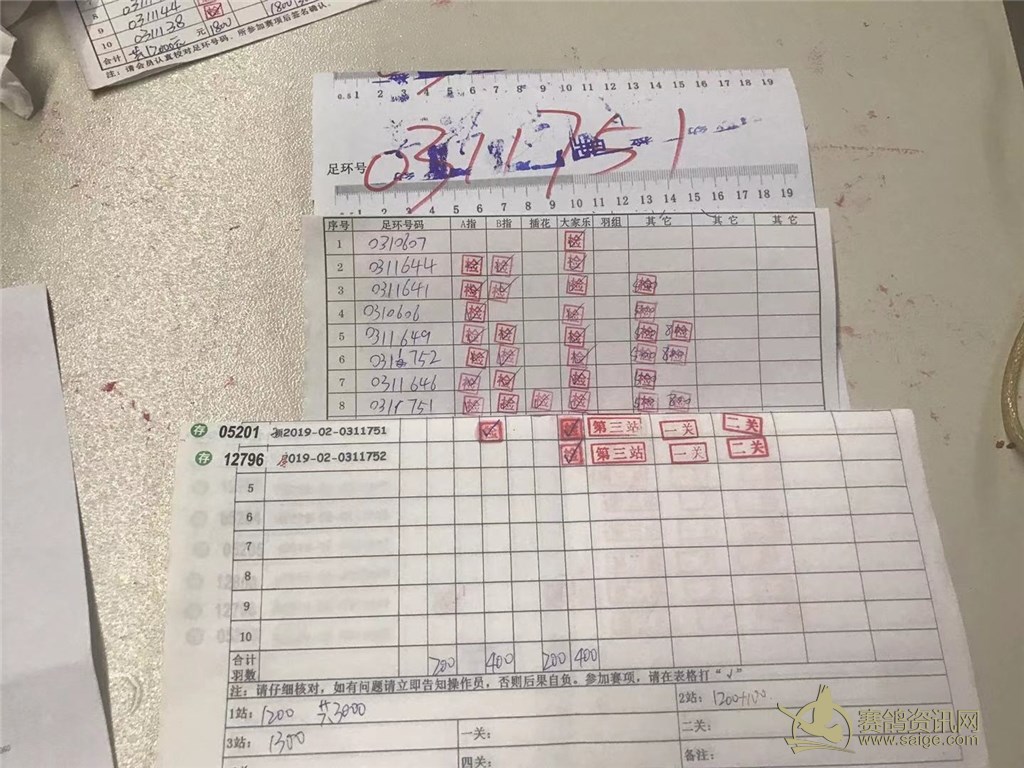 8 0311144 1800
9 0311138 元 1800
10
合计 共17000元
注：请会员认真校对足环号码，所参加赛项后签名确认。
0.5 1 2 3 4 5 6 7 8 9 10 11 12 13 14 15 16 17 18 19
足环号 0311751
1 2 3 4 5 6 7 8 9 10 11 12 13 14 15 16 17 18 19
序号 足环号码 A指 B指 插花 大家乐 羽组 其它 其它 其它
1 0310607 检
2 0311644 检 检 检
3 0311641 检 检 检 检
4 0310606 检 检 检
5 0311649 检 检 检 检 检
6 0311752 检 检 检 检 检
7 0311646 检 检 检 检
8 0311751 检 检 检 检 检
存 05201 2019-02-0311751 检 检 第三站 二关 二关
存 12796 2019-02-0311752 检 第三站 一关 二关
5
6
7
8
9
10
合计羽数 200 400 200 400
注：请仔细核对，如有问题请立即告知操作员，否则后果自负。参加赛项，请在表格打“√”
1站：1200 共3000 2站：1200+100
3站：1300 一关： 二关：
四关： 备注：
赛鸽资讯网
www.saigc.com